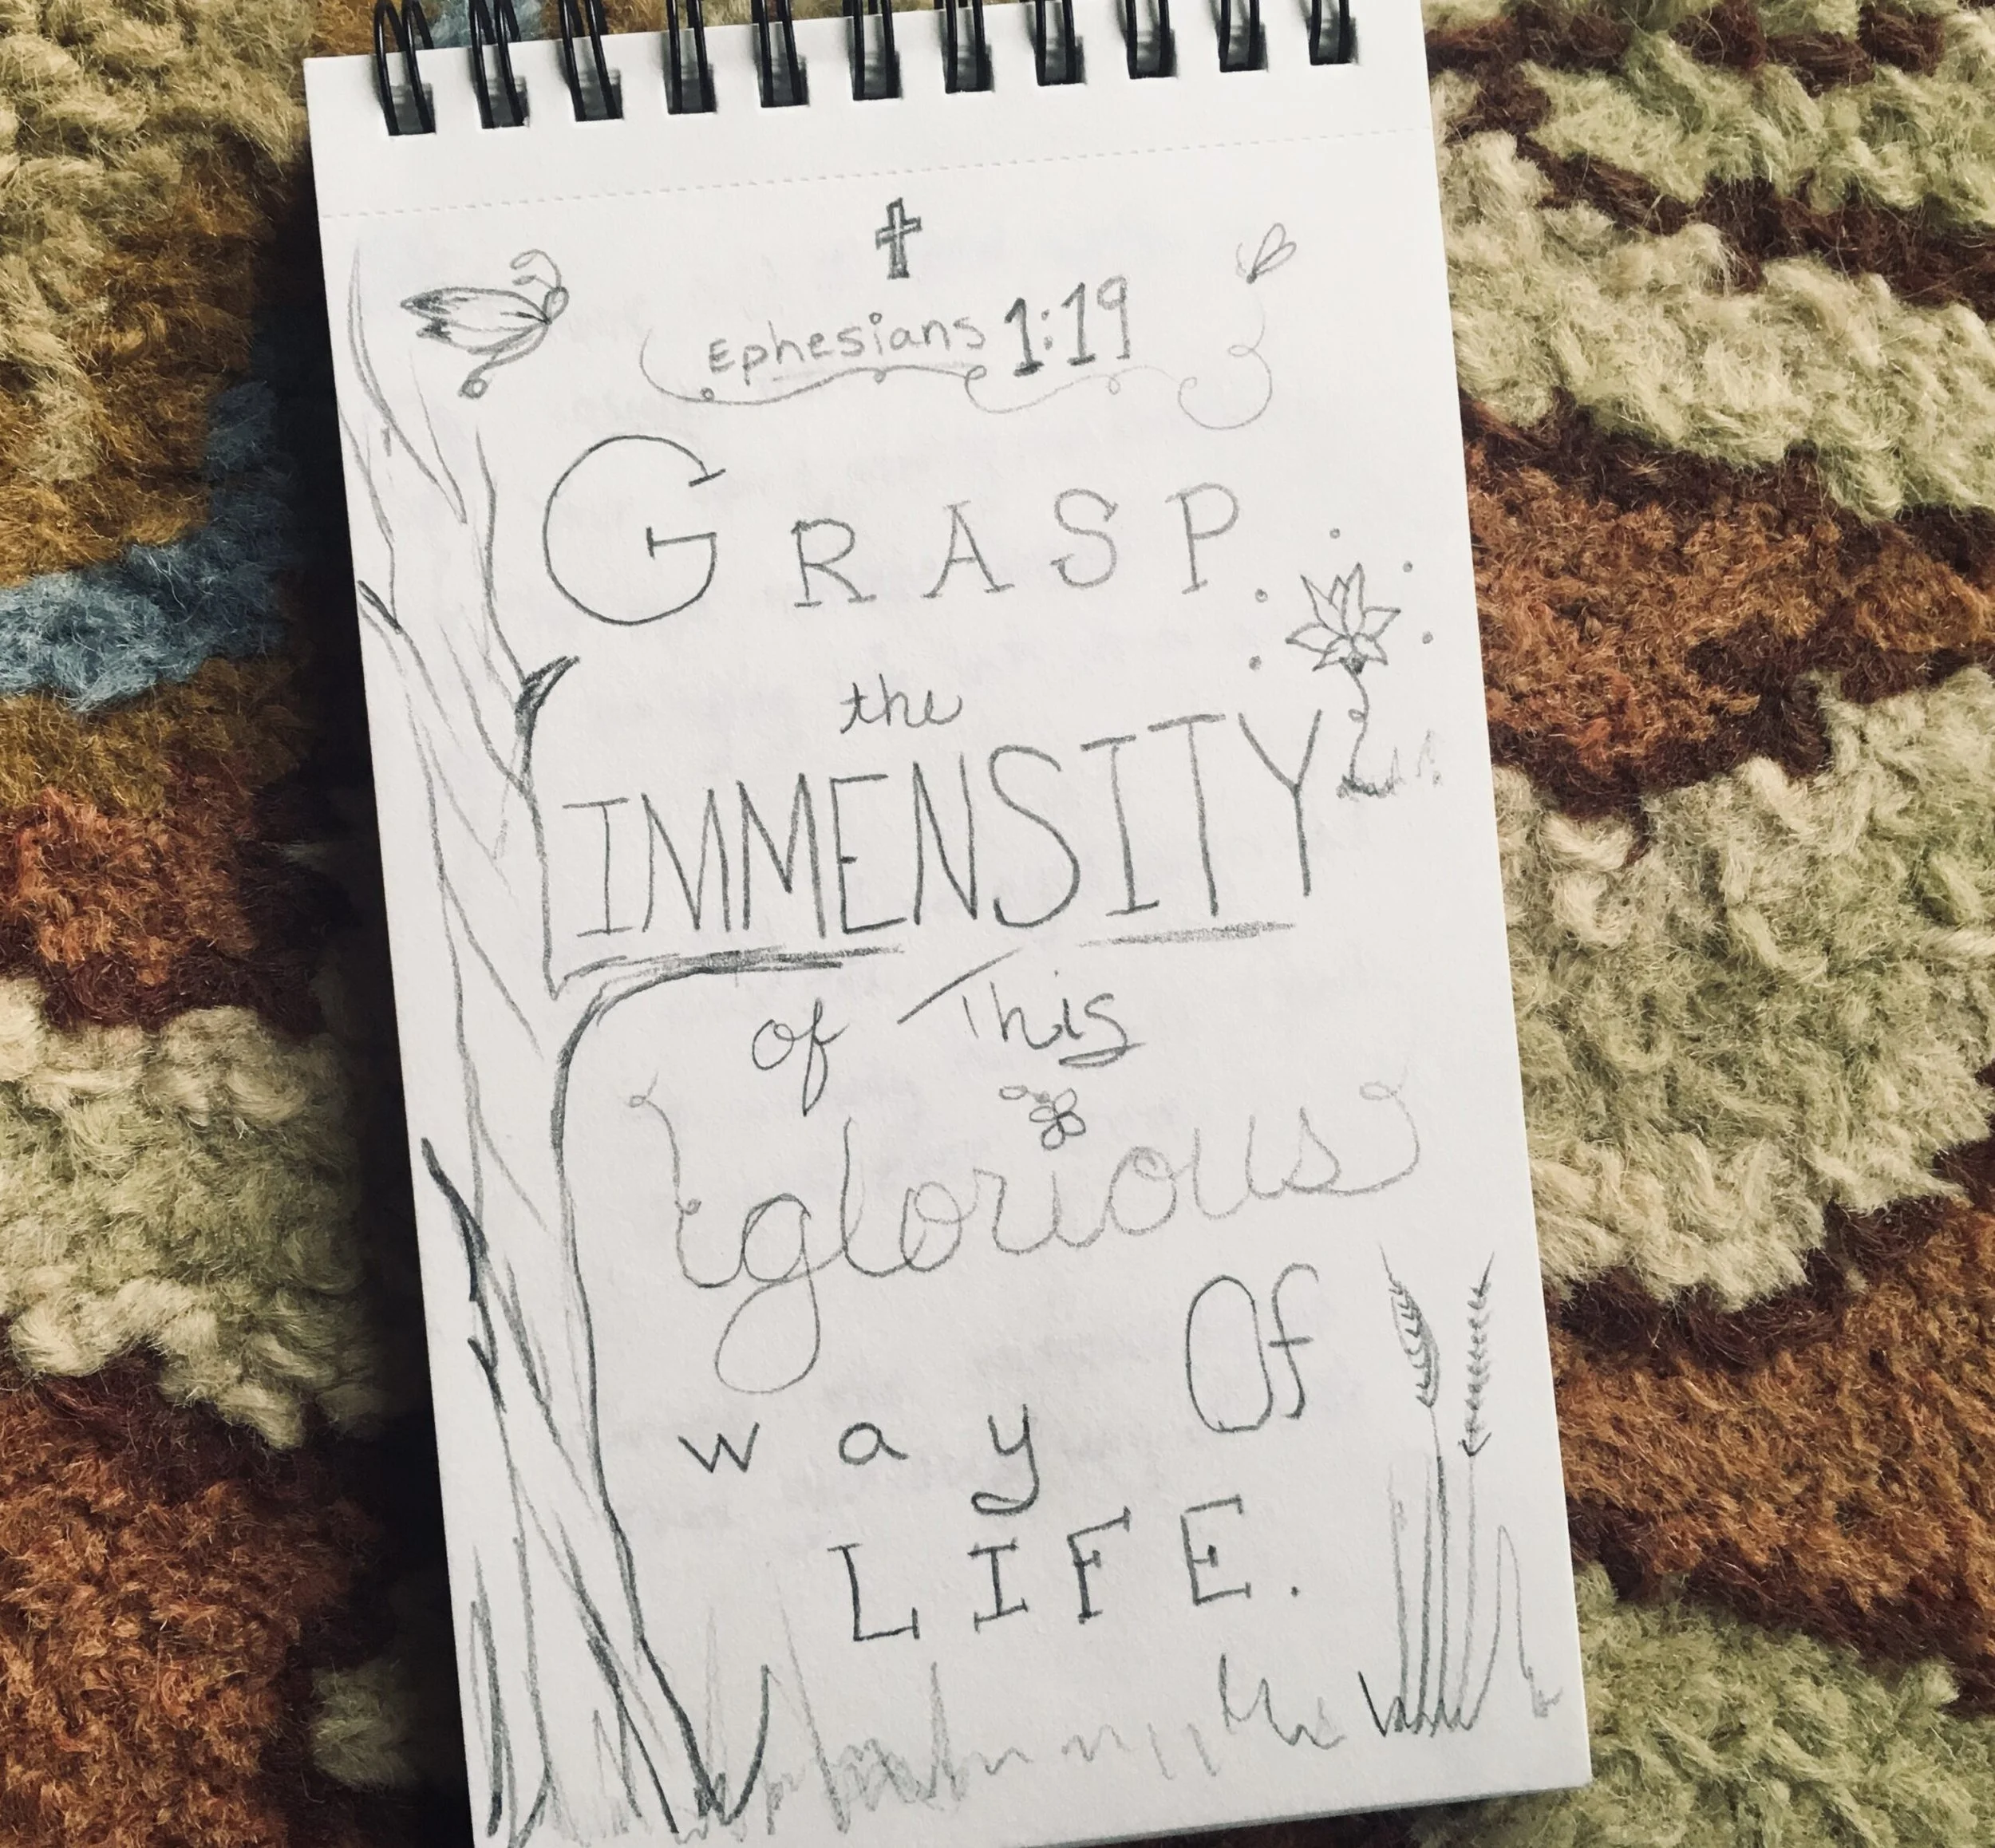 Ephesians 1:19
GRASP
the
IMMENSITY
of This
glorious
way Of
LIFE.